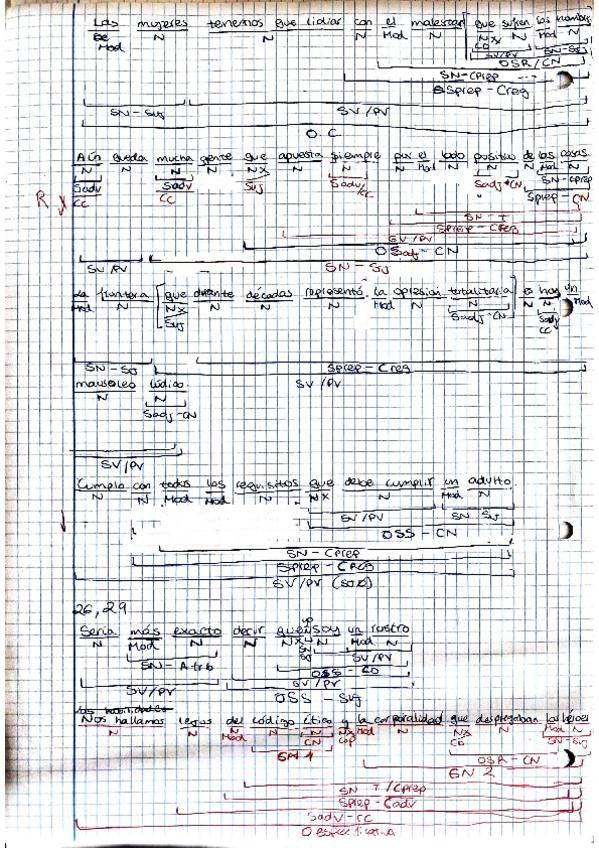 Las mujeres tenemos que lidiar con el malestar [que sufren los hombres
Mod N N N Mod N Nx N Mod N
CD SV/PV SN-Suj
OSR/CN
SN-CPrep
Sprep-Creg
SN-Suj SV/PV
O.C.
Aún queda mucha gente que apuesta siempre por el lado positivo de las cosas.
N N N N Nx N N N Mod N N N Mod N
Sadv Sadv Suj Sadv/CC Sadj-CN SN-Cprep
CC CC Sprep-CN
R
SN-T
Sprep-CReg
SV/PV
OSadj-CN
SV/PV SN-Suj
La frontera [que durante décadas representó la opresión totalitaria] es hoy un
Mod N Nx N N N Mod N N N N Mod
Suj Sadj-CN Sadv
CC
SN-Suj Sprep-Creg
mausoleo lúdico SV/PV
N N
Sadj-CN
SV/PV
Cumplo con todos los requisitos que debe cumplir un adulto.
N N Mod Mod N Nx N Mod N
SV/PV SN-Suj
OSS-CN
SN-CPrep
Sprep-CReg
SV/PV
26,29
Sería más exacto decir que soy un rostro
N Mod N N Nx N Mod N
SN-Atrb SV/PV
OSS-CD
SV/PV SV/PV
OSS-Suj
Nos hallamos lejos del código ético y la corporalidad que desplegaban los héroes
N N Mod N N Nx Mod N Nx N Mod N
CN cop CD SN-Suj
SN 1 OSR-CN
SN 2
SN T/CPrep
Sprep-Cadv
Sadv-CC